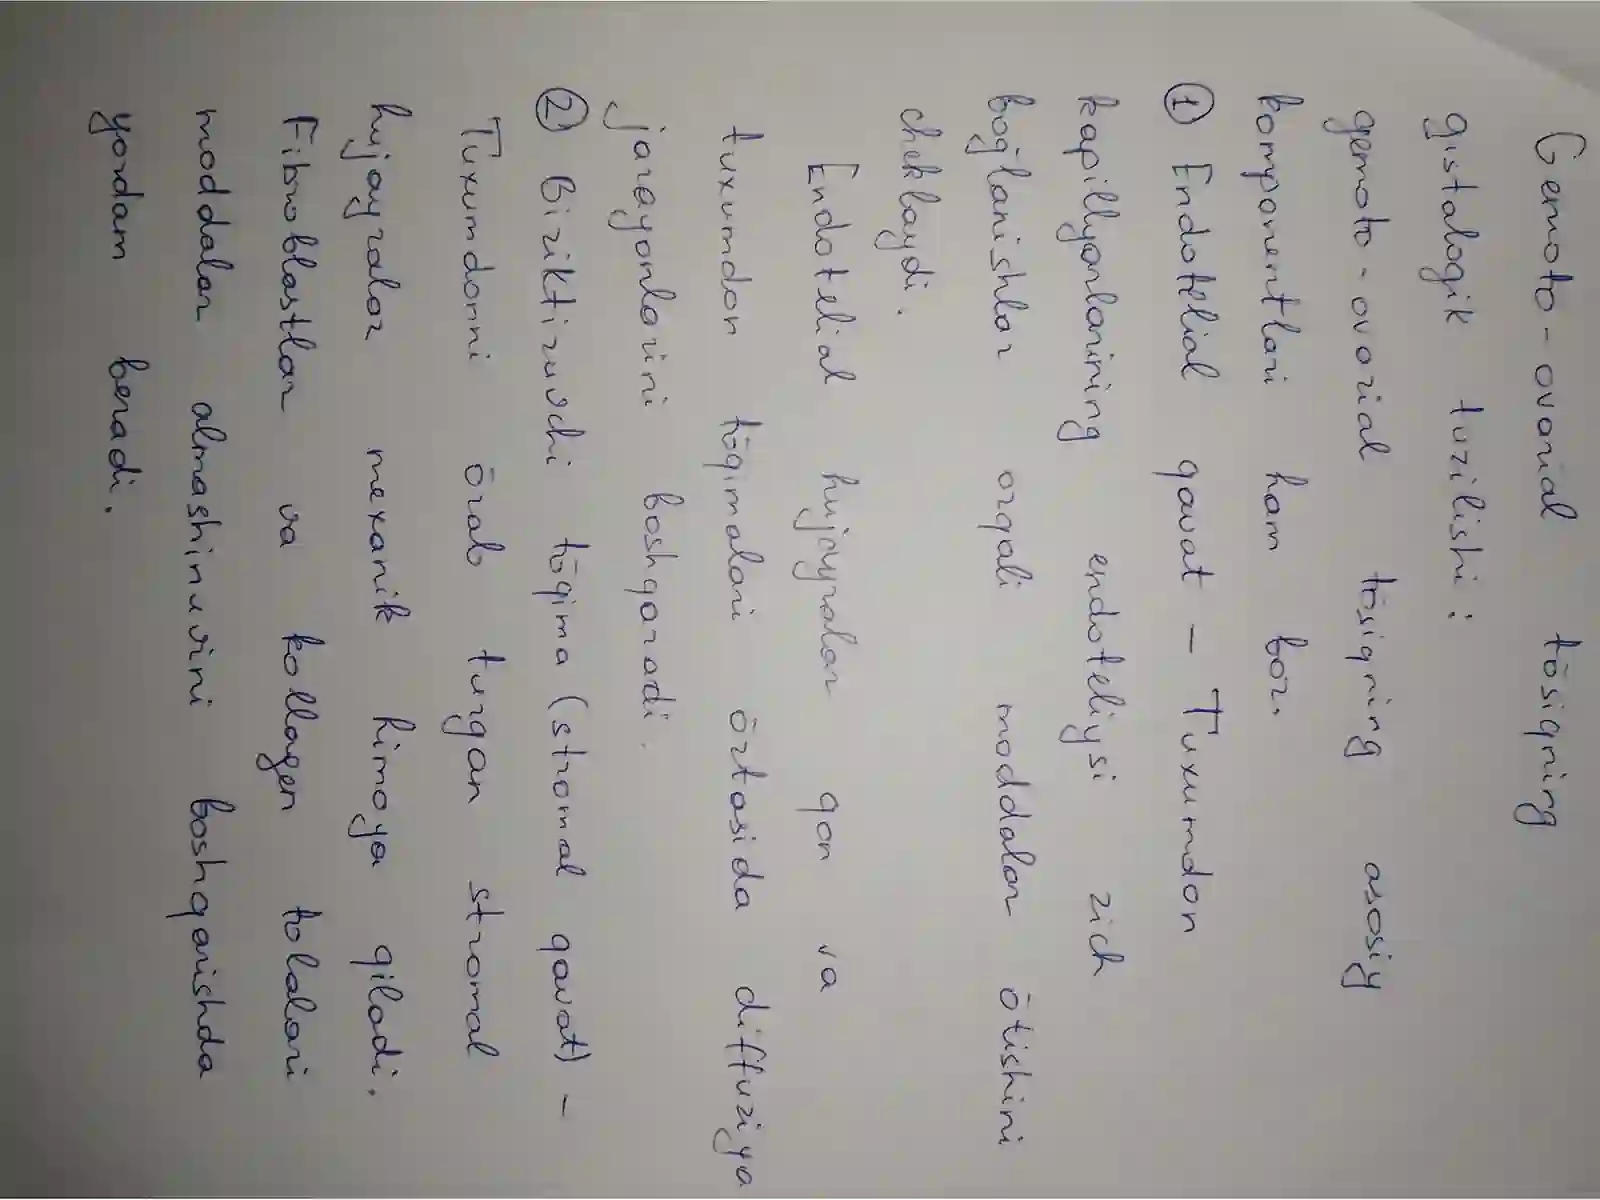 Gemoto-ovarial tōsiqning
gistalogik tuzilishi:
gemoto-ovarial tōsiqning asosiy
komponentlari ham bor.
① Endotelial qavat - Tuxumdon
kapillyarlarining endoteliysi zich
bog̃lanishlar orqali moddalar ōtishini
cheklaydi.
Endotelial hujayralar qon va
tuxumdon tōqimalari ōrtasida diffuziya
jarayonlarini boshqaradi.
② Biriktiruvchi tōqima (stromal qavat) -
Tuxumdonni ōrab turgan stromal
hujayralar mexanik himoya qiladi.
Fibroblastlar va kollagen tolalari
moddalar almashinuvini boshqarishda
yordam beradi.